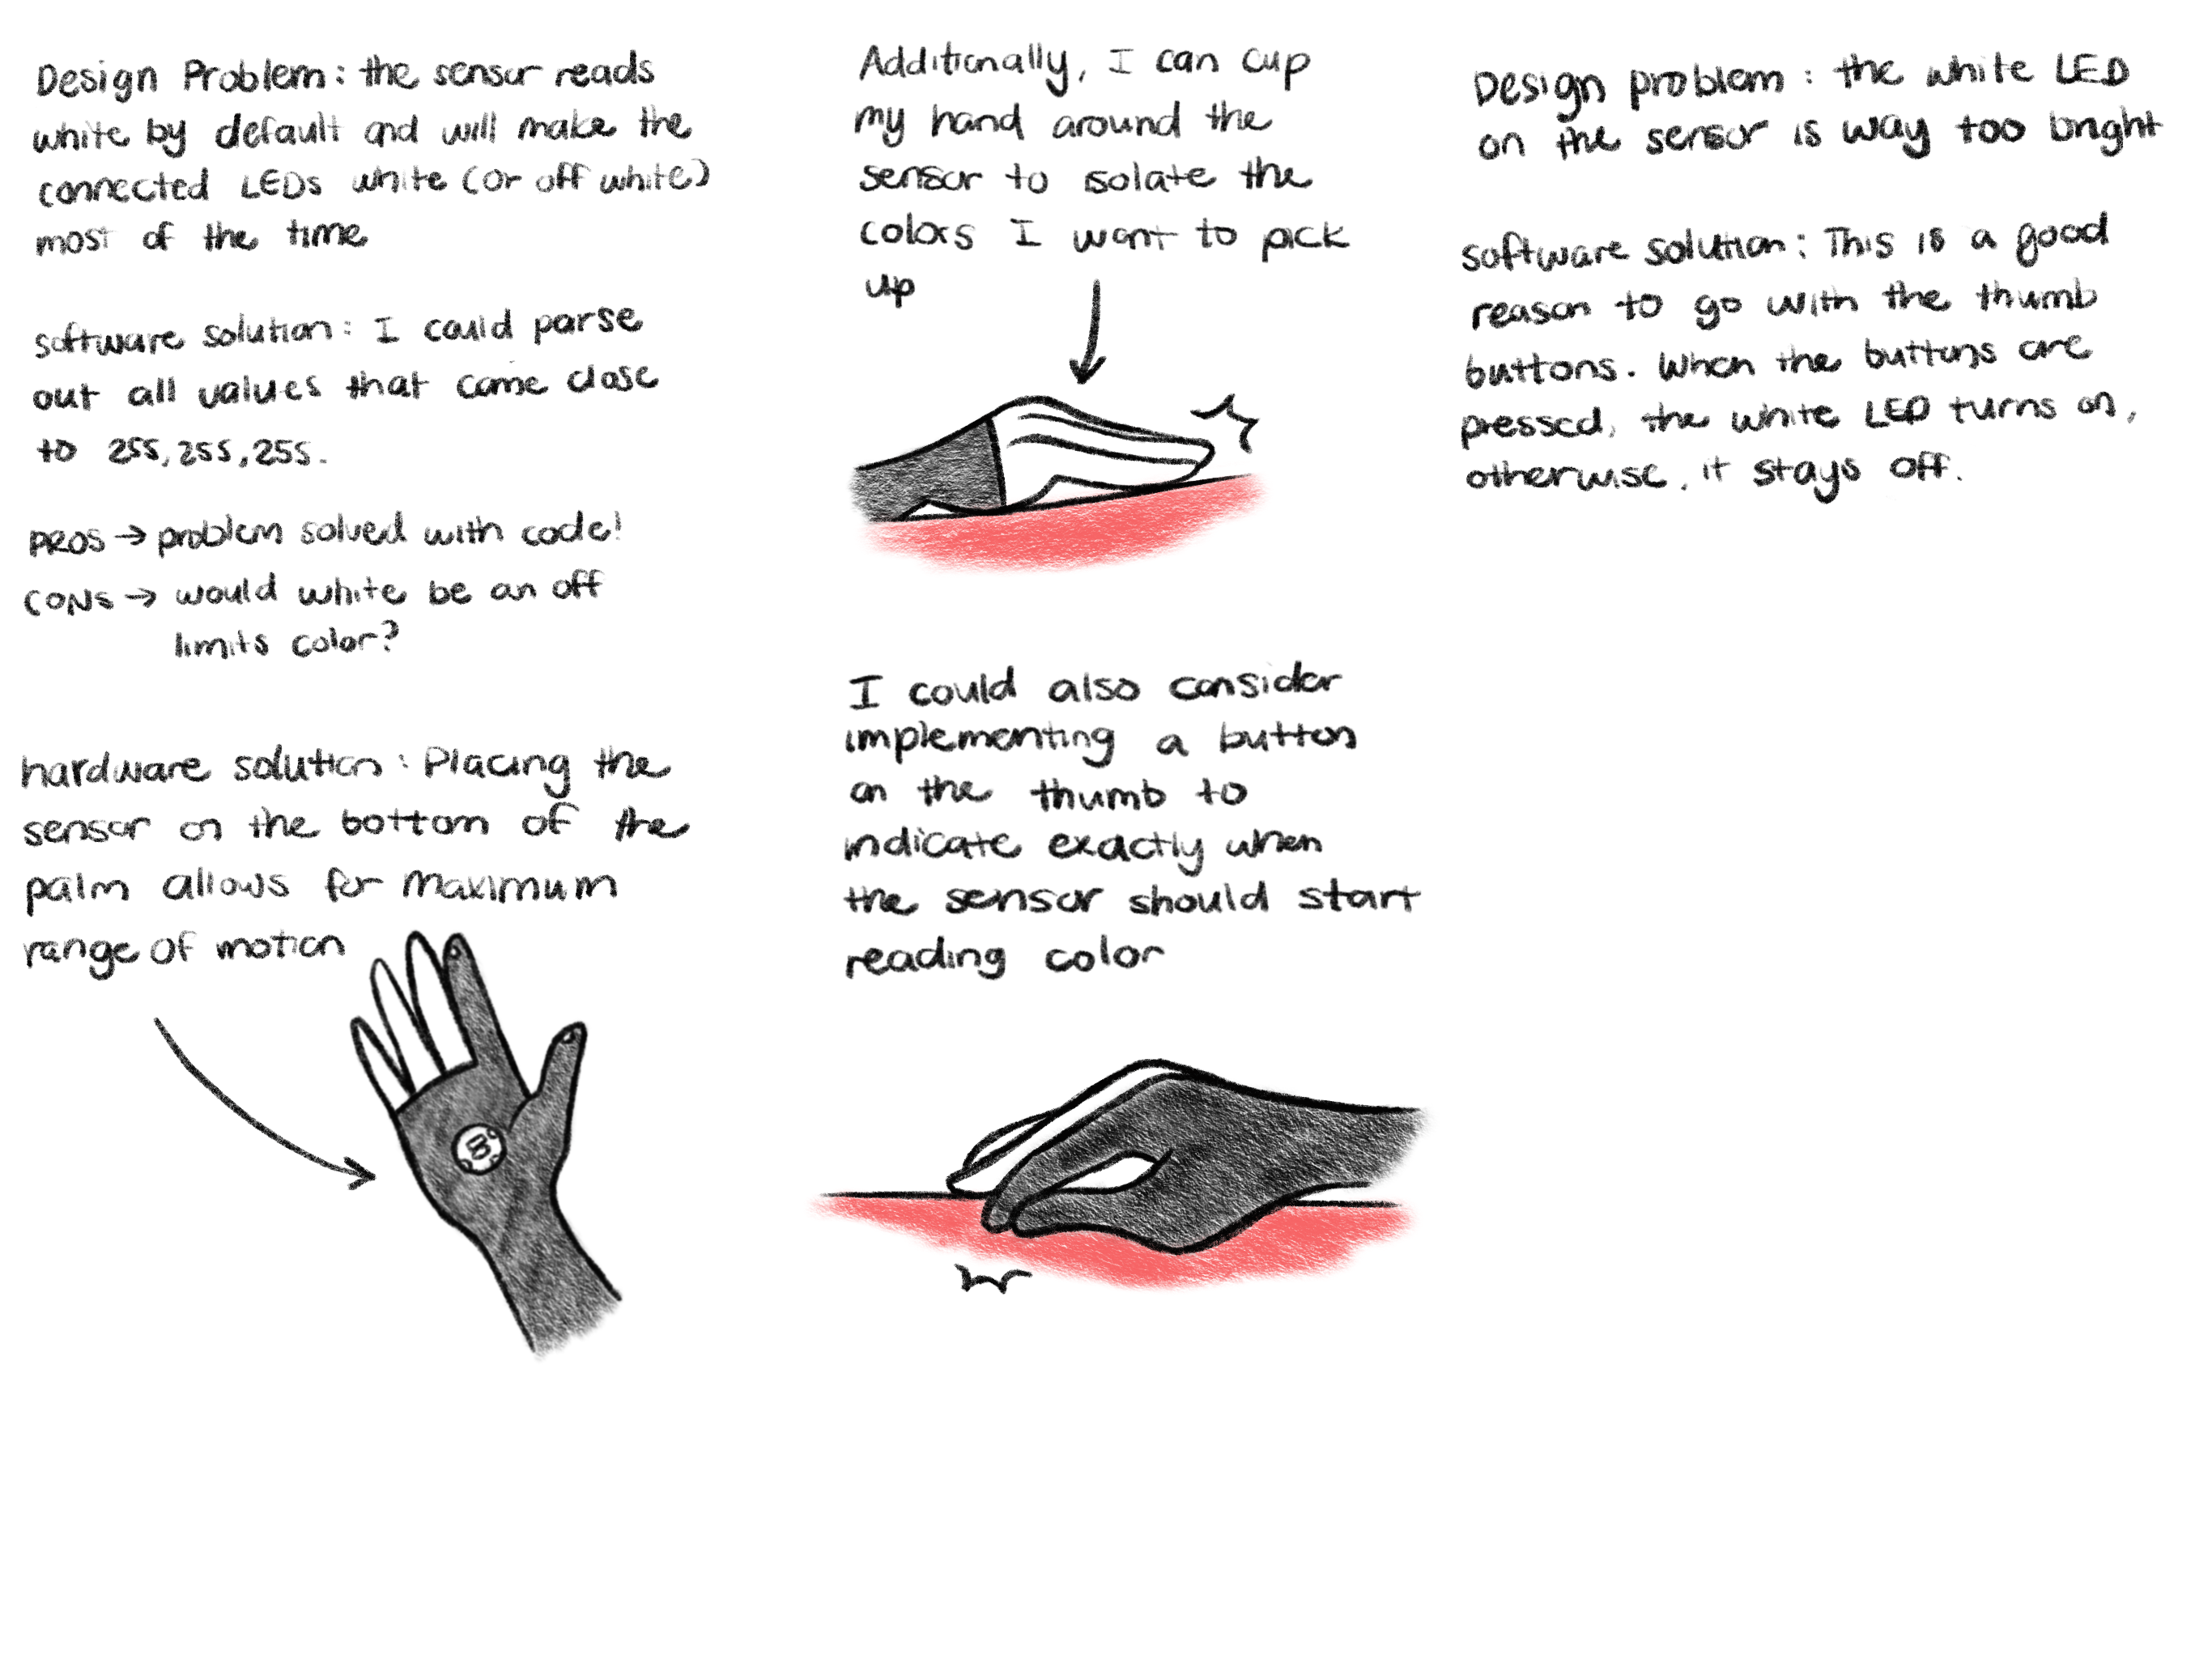 Design Problem: the sensor reads
white by default and will make the
connected LEDs white (or off white)
most of the time
software solution: I could parse
out all values that come close
to 255, 255, 255.
PROS → problem solved with code!
CONS → would white be an off
limits color?
hardware solution: Placing the
sensor on the bottom of the
palm allows for maximum
range of motion
Additionally, I can cup
my hand around the
sensor to isolate the
colors I want to pick
up
I could also consider
implementing a button
on the thumb to
indicate exactly when
the sensor should start
reading color
Design problem: the white LED
on the sensor is way too bright
software solution: This is a good
reason to go with the thumb
buttons. When the buttons are
pressed, the white LED turns on,
otherwise, it stays off.